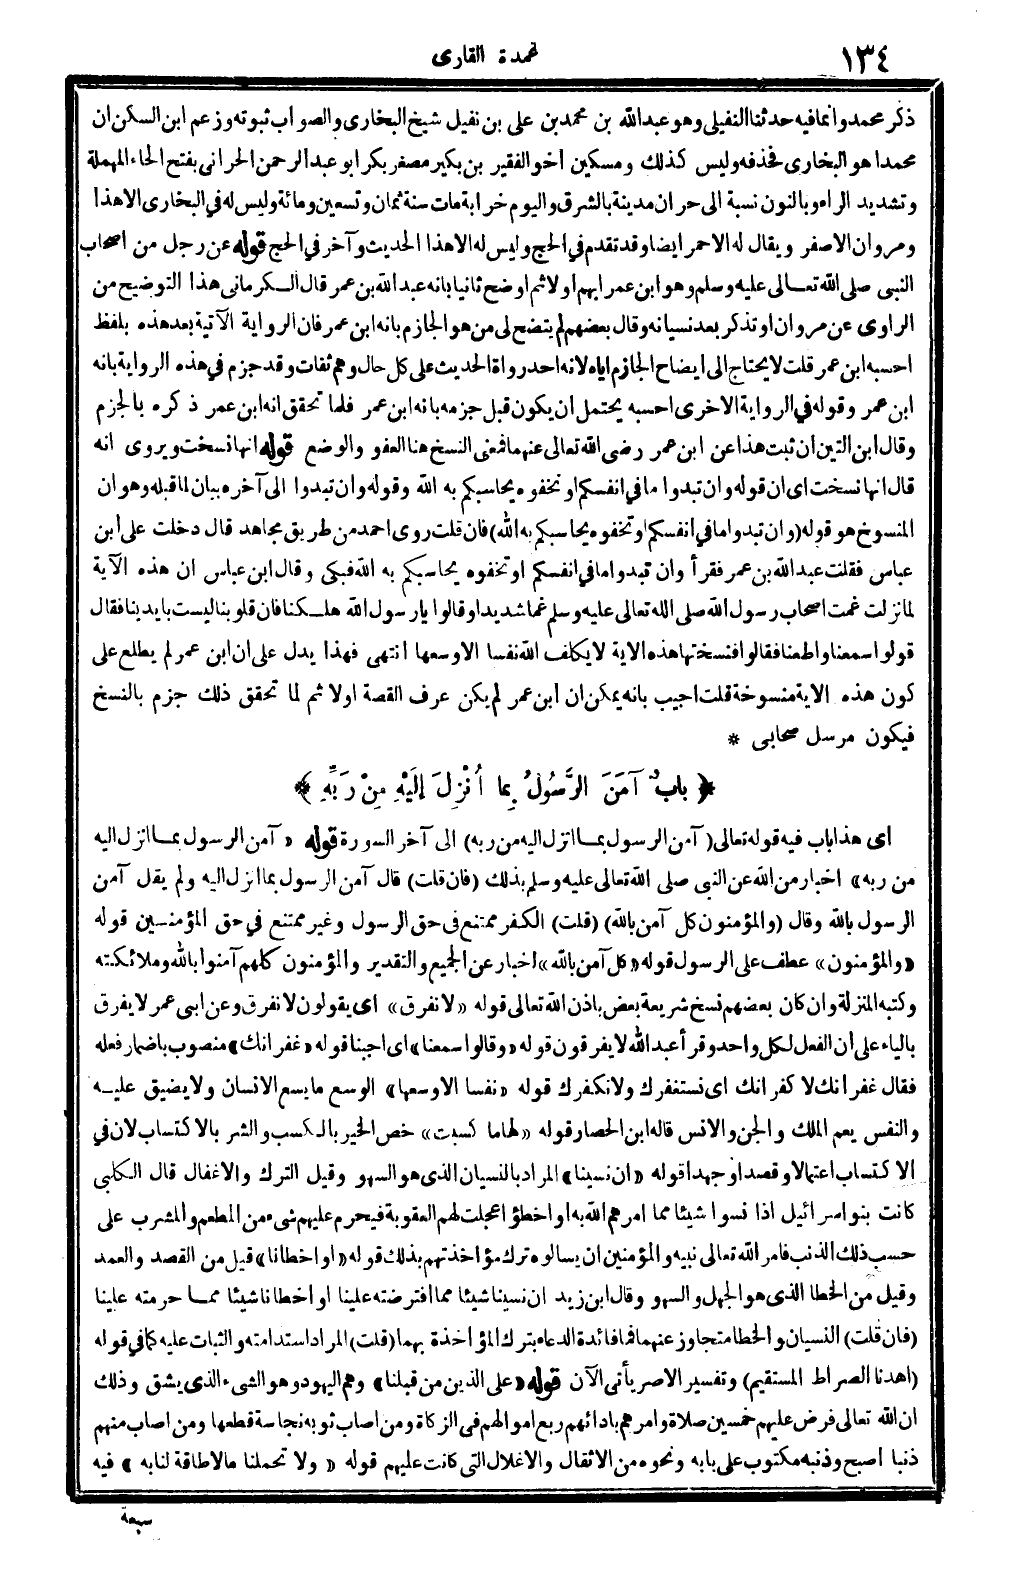 ١٣٤
عمدة القارى
ذكر محمد وانما فيه حدثنا النفيلى وهو عبد الله بن محمد بن على بن نفيل شيخ البخارى والصواب ثبوته وزعم ابن السكن ان
محمدا هو البخارى فحذفه وليس كذلك ومسكين اخو الفقير بن بكير مصغر بكر ابو عبد الرحمن الحرانى بفتح الحاء المهملة
وتشديد الراء وبالنون نسبة الى حران مدينة بالشرق واليوم خرابة مات سنة ثمان وتسعين ومائة وليس له فى البخارى الا هذا
ومروان الاصفر ويقال له الاحمر ايضا وقد تقدم فى الحج وليس له الا هذا الحديث وآخر فى الحج قوله عن رجل من اصحاب
النبى صلى الله تعالى عليه وسلم وهو ابن عمر ابهم اولا ثم اوضح ثانيا بانه عبد الله بن عمر قال الكرمانى هذا التوضيح من
الراوى عن مروان او تذكر بعد نسيانه وقال بعضهم لم يتضح لى من هو الجازم بانه ابن عمر فان الرواية الآتية بعد هذه بلفظ
احسبه ابن عمر قلت لا يحتاج الى ايضاح الجازم اياه لانه احد رواة الحديث على كل حال وهم ثقات وقد جزم فى هذه الرواية بانه
ابن عمر وقوله فى الرواية الاخرى احسبه يحتمل ان يكون قبل جزمه بانه ابن عمر فلما تحقق انه ابن عمر ذكره بالجزم
وقال ابن التين ان ثبت هذا عن ابن عمر رضى الله تعالى عنهما فمعنى النسخ هنا العفو والوضع قوله انها نسخت ويروى انه
قال انها نسخت اى ان قوله وان تبدوا ما فى انفسكم او تخفوه يحاسبكم به الله وقوله وان تبدوا الى آخره بيان لما قبله وهو ان
المنسوخ هو قوله (وان تبدوا ما فى انفسكم او تخفوه يحاسبكم به الله) فان قلت روى احمد من طريق مجاهد قال دخلت على ابن
عباس فقلت عبد الله بن عمر فقرأ وان تبدوا ما فى انفسكم او تخفوه يحاسبكم به الله فبكى وقال ابن عباس ان هذه الآية
لما نزلت غمت اصحاب رسول الله صلى الله تعالى عليه وسلم غما شديدا وقالوا يا رسول الله هلكنا فان قلوبنا ليست بايدينا فقال
قولوا سمعنا واطعنا فقالوا فنسختها هذه الاية لا يكلف الله نفسا الا وسعها انتهى فهذا يدل على ان ابن عمر لم يطلع على
كون هذه الاية منسوخة قلت اجيب بانه يمكن ان ابن عمر لم يكن عرف القصة اولا ثم لما تحقق ذلك جزم بالنسخ
فيكون مرسل صحابى *
﴿ بابٌ آمَنَ الرَّسُولُ بِما أُنْزِلَ إلَيْهِ مِنْ رَبِّهِ ﴾
اى هذا باب فيه قوله تعالى (آمن الرسول بما انزل اليه من ربه) الى آخر السورة قوله « آمن الرسول بما انزل اليه
من ربه» اخبار من الله عن النبى صلى الله تعالى عليه وسلم بذلك (فان قلت) قال آمن الرسول بما انزل اليه ولم يقل آمن
الرسول بالله وقال (والمؤمنون كل آمن بالله) (قلت) الكفر ممتنع فى حق الرسول وغير ممتنع فى حق المؤمنين قوله
«والمؤمنون» عطف على الرسول قوله «كل آمن بالله» اخبار عن الجميع والتقدير والمؤمنون كلهم آمنوا بالله وملائكته
وكتبه المنزلة وان كان بعضهم نسخ شريعة بعض باذن الله تعالى قوله «لا نفرق» اى يقولون لا نفرق وعن ابى عمر لا يفرق
بالياء على أن الفعل لكل واحد وقرأ عبد الله لا يفرقون قوله «وقالوا سمعنا» اى اجبنا قوله «غفرانك» منصوب باضمار فعله
فقال غفرانك لا كفرانك اى نستغفرك ولا نكفرك قوله «نفسا الا وسعها» الوسع ما يسع الانسان ولا يضيق عليه
والنفس يعم الملك والجن والانس قاله ابن الحصار قوله «لها ما كسبت» خص الخير بالكسب والشر بالاكتساب لان فى
الاكتساب اعتمالا وقصدا وجهدا قوله «ان نسينا» المراد بالنسيان الذى هو السهو وقيل الترك والاغفال قال الكلبى
كانت بنو اسرائيل اذا نسوا شيئا مما امرهم الله به او اخطؤا عجلت لهم العقوبة فيحرم عليهم شىء من المطعم والمشرب على
حسب ذلك الذنب فامر الله تعالى نبيه والمؤمنين ان يسالوه ترك مؤاخذتهم بذلك قوله «او اخطانا» قيل من القصد والعمد
وقيل من الخطا الذى هو الجهل والسهو وقال ابن زيد ان نسينا شيئا مما افترضته علينا او اخطانا شيئا مما حرمته علينا
(فان قلت) النسيان والخطا متجاوز عنهما فما فائدة الدعاء بترك المؤاخذة بهما (قلت) المراد استدامته والثبات عليه كما فى قوله
(اهدنا الصراط المستقيم) وتفسير الاصر يأتى الآن قوله «على الذين من قبلنا» وهم اليهود وهو الشىء الذى يشق وذلك
ان الله تعالى فرض عليهم خمسين صلاة وامرهم بادائهم ربع اموالهم فى الزكاة ومن اصاب ثوبه نجاسة قطعها ومن اصاب منهم
ذنبا اصبح وذنبه مكتوب على بابه ونحوه من الاثقال والاغلال التى كانت عليهم قوله « ولا تحملنا مالا طاقة لنا به » فيه
سبعة